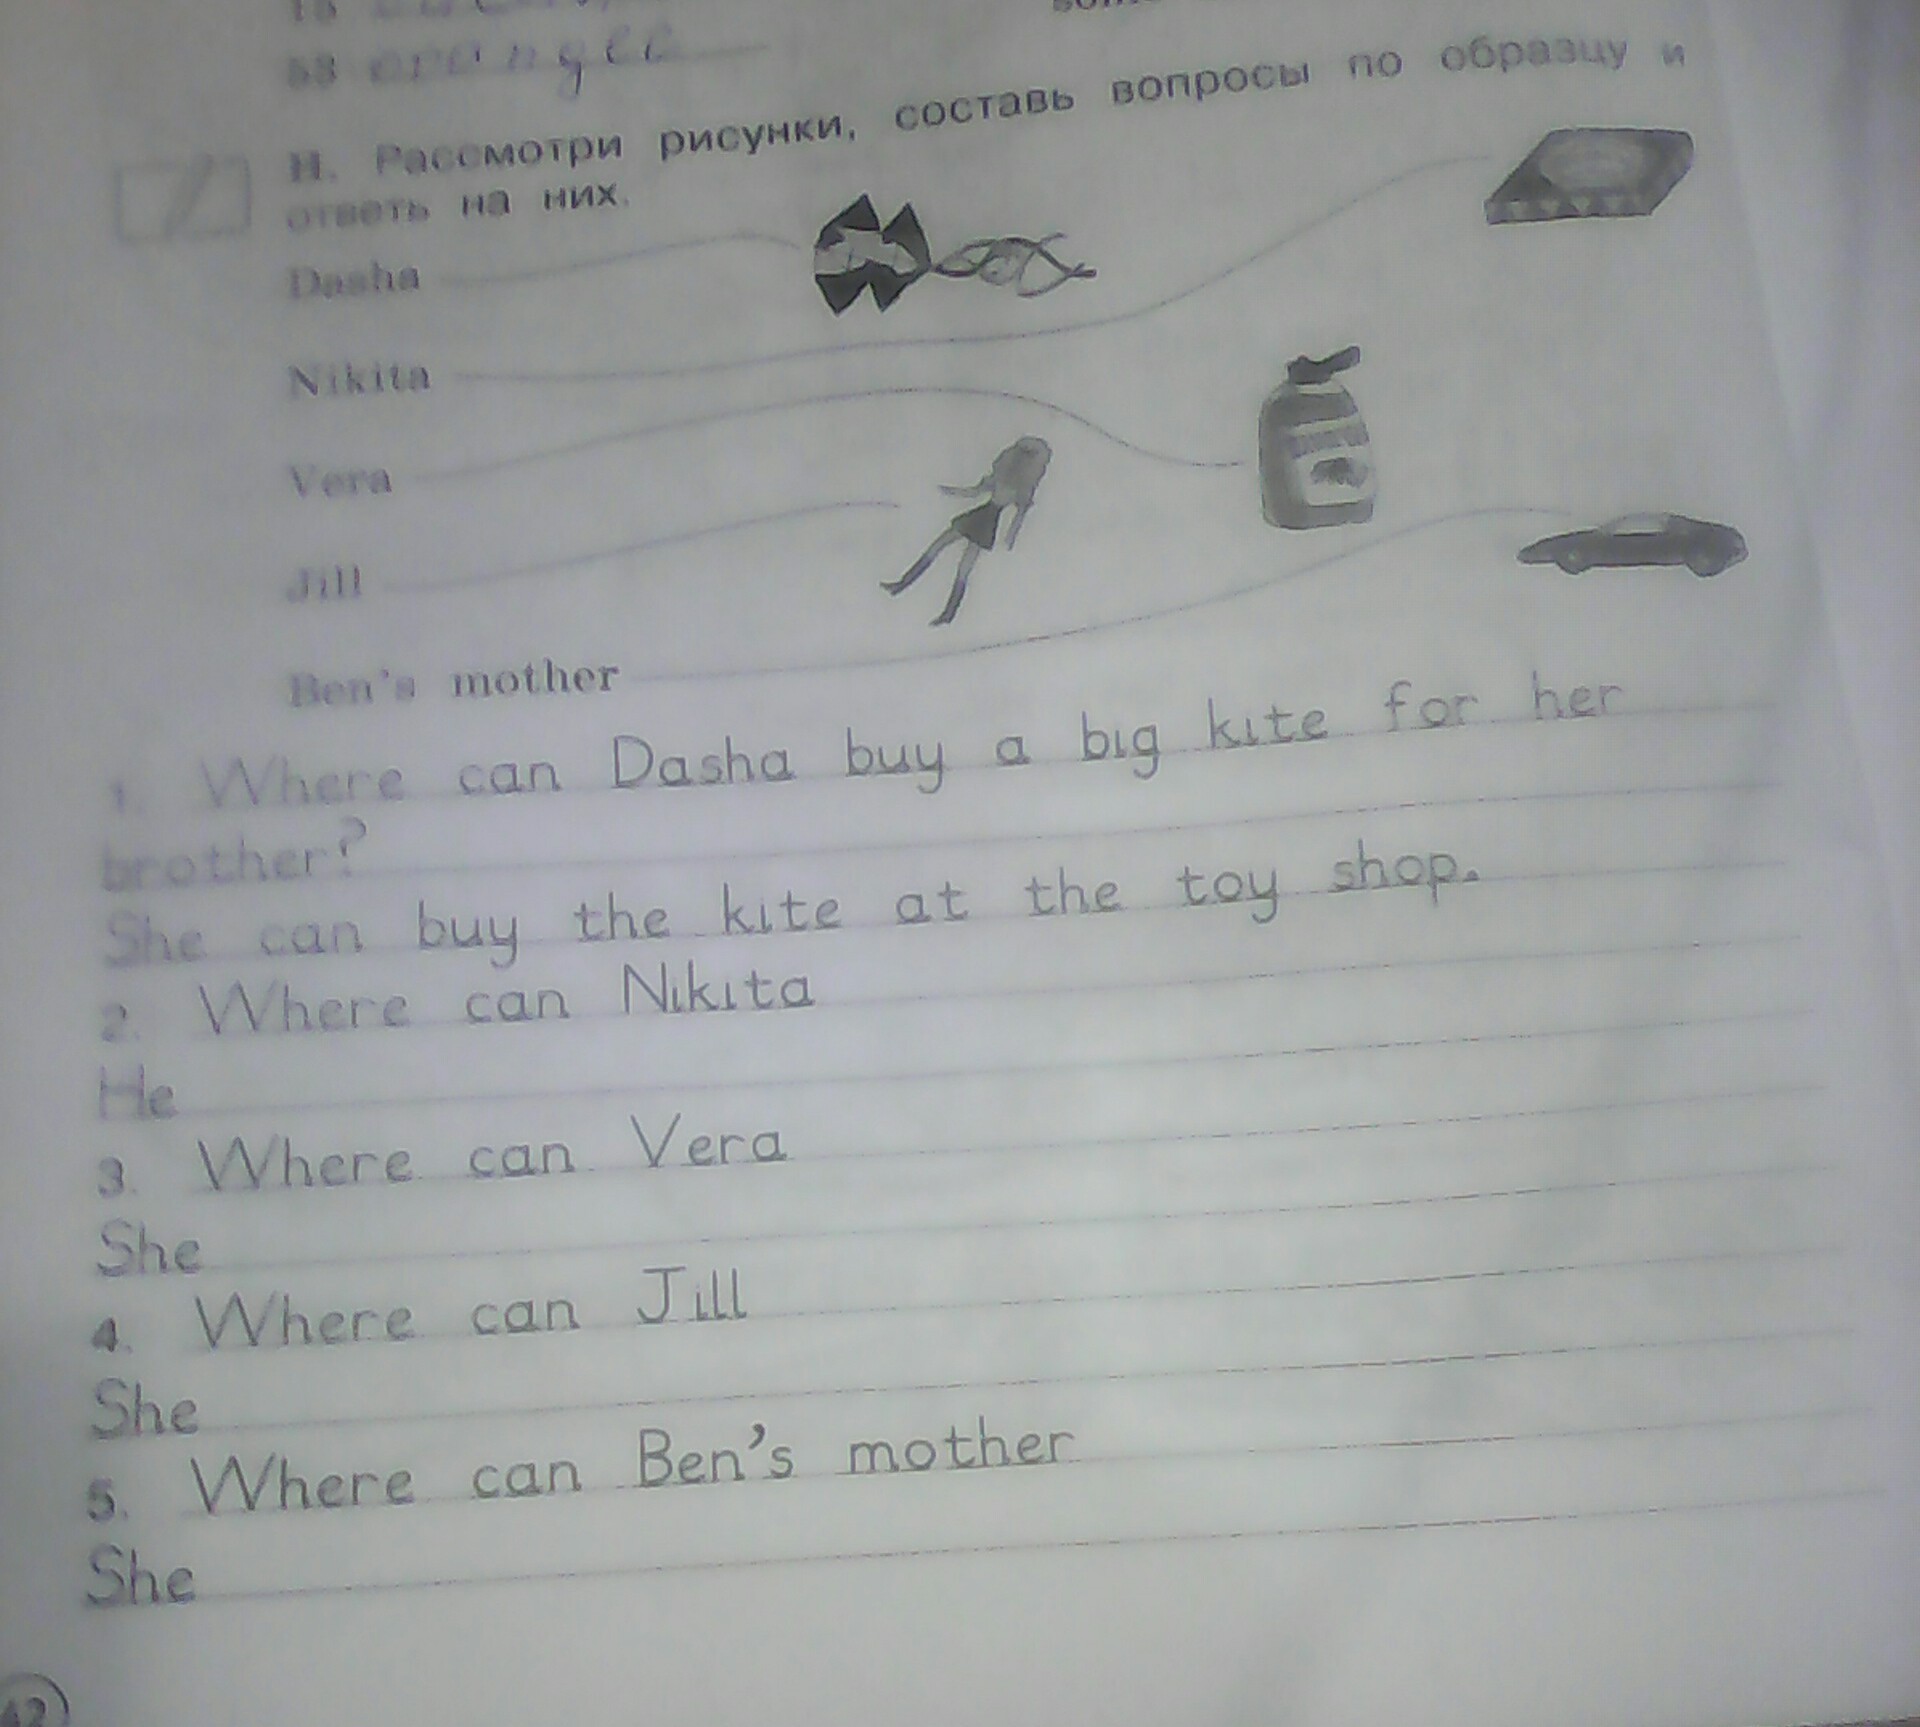 58 oranges
H. Рассмотри рисунки, составь вопросы по образцу и
ответь на них.
Dasha
Nikita
Vera
Jill
Ben's mother
1. Where can Dasha buy a big kite for her
brother?
She can buy the kite at the toy shop.
2. Where can Nikita
He
3. Where can Vera
She
4. Where can Jill
She
5. Where can Ben's mother
She
42